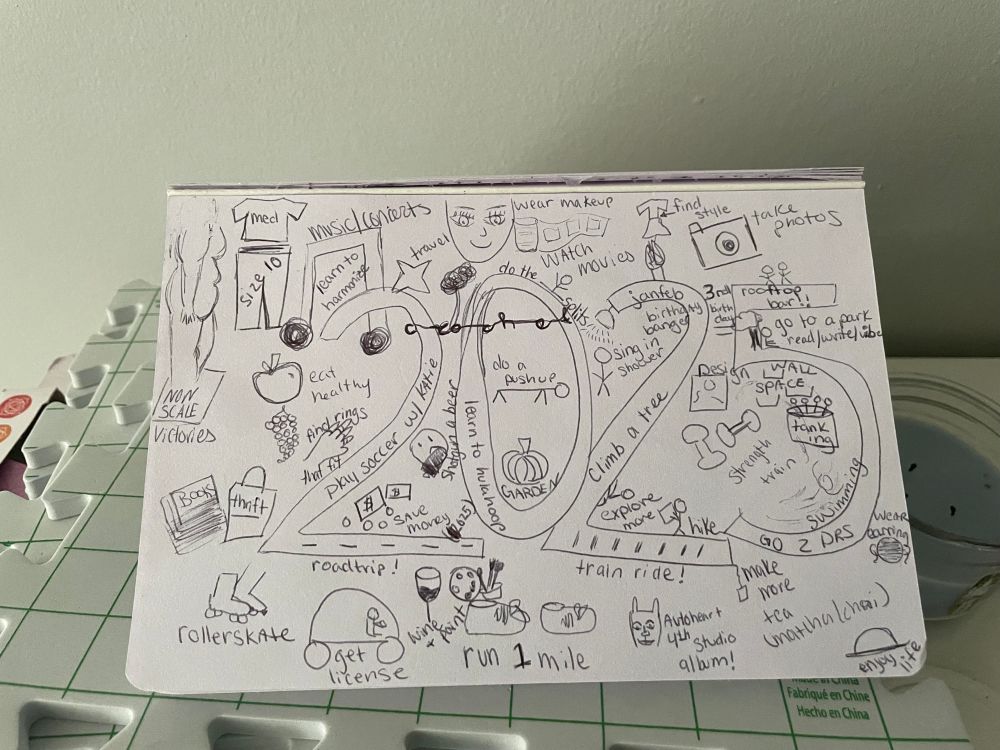 med
size 10
music/concerts
learn to
harmonize
travel
wear makeup
WATCH
movies
find
style
take
photos
do the
splits
alcohol
janfeb
birthday
banger
3rd
birth
day
rooftop
bar!!
go to a park
read/write/vibe
sing in
shower
eat
healthy
And rings
that fit
NON
SCALE
Victories
play soccer w/ Katie
shotgun a beer
learn to hulahoop
do a
pushup
GARDEN
Climb a tree
Design
WALL
SPACE
tank
ing
strength
train
swimming
GO 2 DRS
WEAR
earring
BOOKS
thrift
$
B
SAVE
money
explore
more
hike
roadtrip!
train ride!
make
more
tea
(matcha/chai)
rollerskate
get
license
wine
paint
run 1 mile
Autoheart
4th studio
album!
enjoy life
Made in China
Fabriqué en Chine
Hecho en China